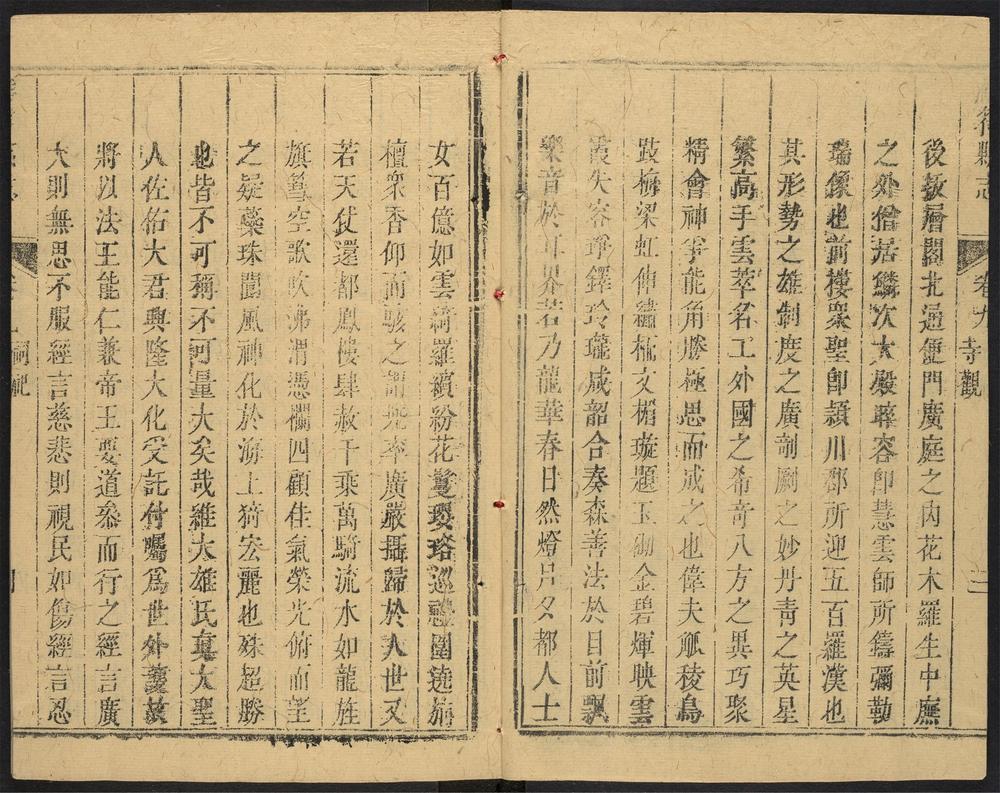 符縣志 卷九 寺觀 二
後拔層閣北通便門廣庭之内花木羅生中廡
之外僧居鱗次大殿睟容即慧雲師所鑄彌勒
瑞像也前樓衆聖即潁川郡所迎五百羅漢也
其形勢之雄制度之廣剞劂之妙丹青之英星
繁高手雲萃名工外國之希奇八方之異巧聚
精會神爭能角勝極思而成之也偉夫觚稜鳥
跂梅梁虹伸繡栭文楣璇題玉砌金碧煇映雲
霞失容箏鐸玲瓏咸韶合奏森善法於目前飄
樂音於耳界若乃龍華春日然燈月夕都人士
女百億如雲綺羅繽紛花鬘瓔珞巡禮圍遶旃
檀衆香仰而駭之謂兜率廣嚴攝歸於人世又
若天仗還都鳳樓肆赦千乘萬騎流水如龍旌
旗蔽空歌吹沸渭憑欄四顧佳氣榮光俯而望
之疑蘂珠閬風神化於海上猗宏麗也殊超勝
也皆不可稱不可量大矣哉維大雄氏真大聖
人佐佑大君興隆大化受託付囑爲世外護故
將以法王能仁兼帝王要道叅而行之經言廣
大則無思不服經言慈悲則視民如傷經言忍